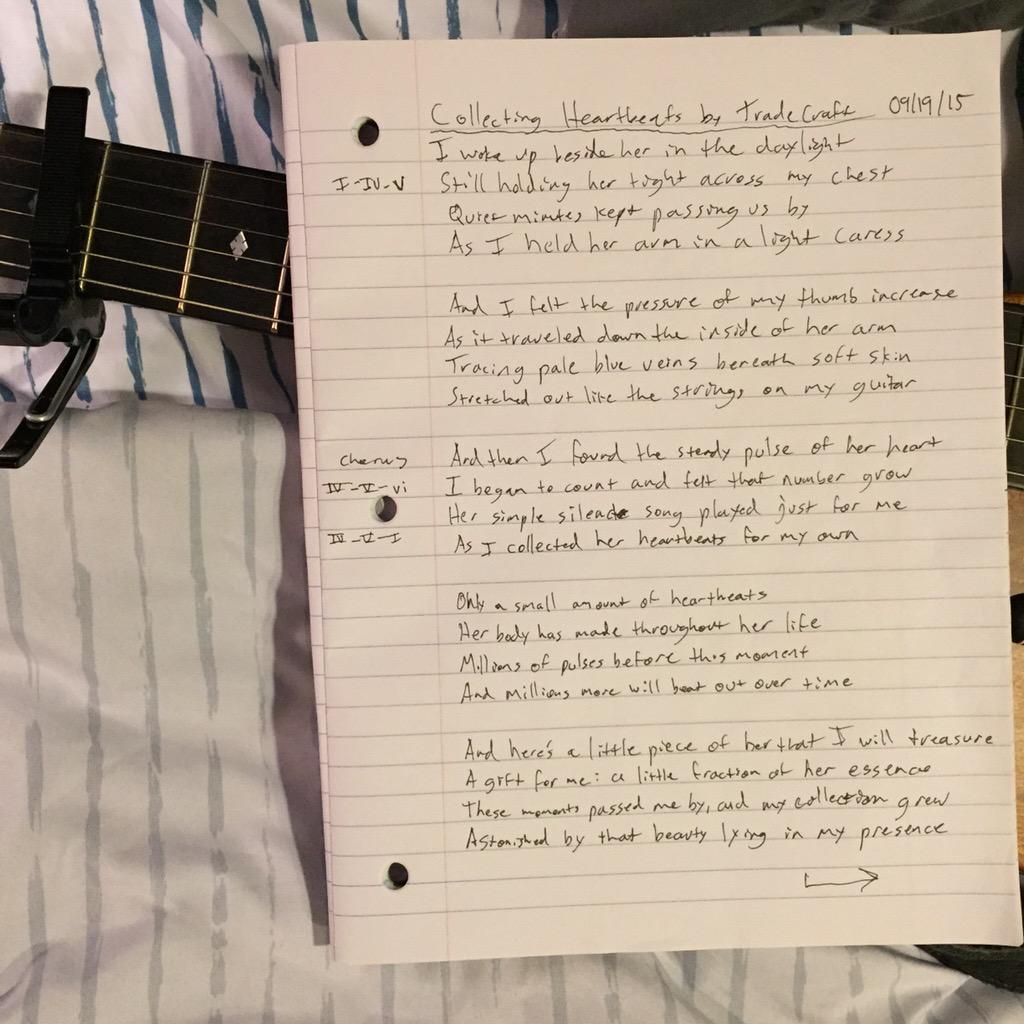 Collecting Heartbeats by TradeCraft 09/19/15
I woke up beside her in the daylight
I-IV-V Still holding her tight across my chest
Quiet minutes kept passing us by
As I held her arm in a light caress
And I felt the pressure of my thumb increase
As it traveled down the inside of her arm
Tracing pale blue veins beneath soft skin
Stretched out like the strings on my guitar
Chorus And then I found the steady pulse of her heart
IV-V-vi I began to count and felt that number grow
Her simple silence song played just for me
IV-V-I As I collected her heartbeats for my own
Only a small amount of heartbeats
Her body has made throughout her life
Millions of pulses before this moment
And millions more will beat out over time
And here's a little piece of her that I will treasure
A gift for me: a little fraction of her essence
These moments passed me by, and my collection grew
Astonished by that beauty lying in my presence